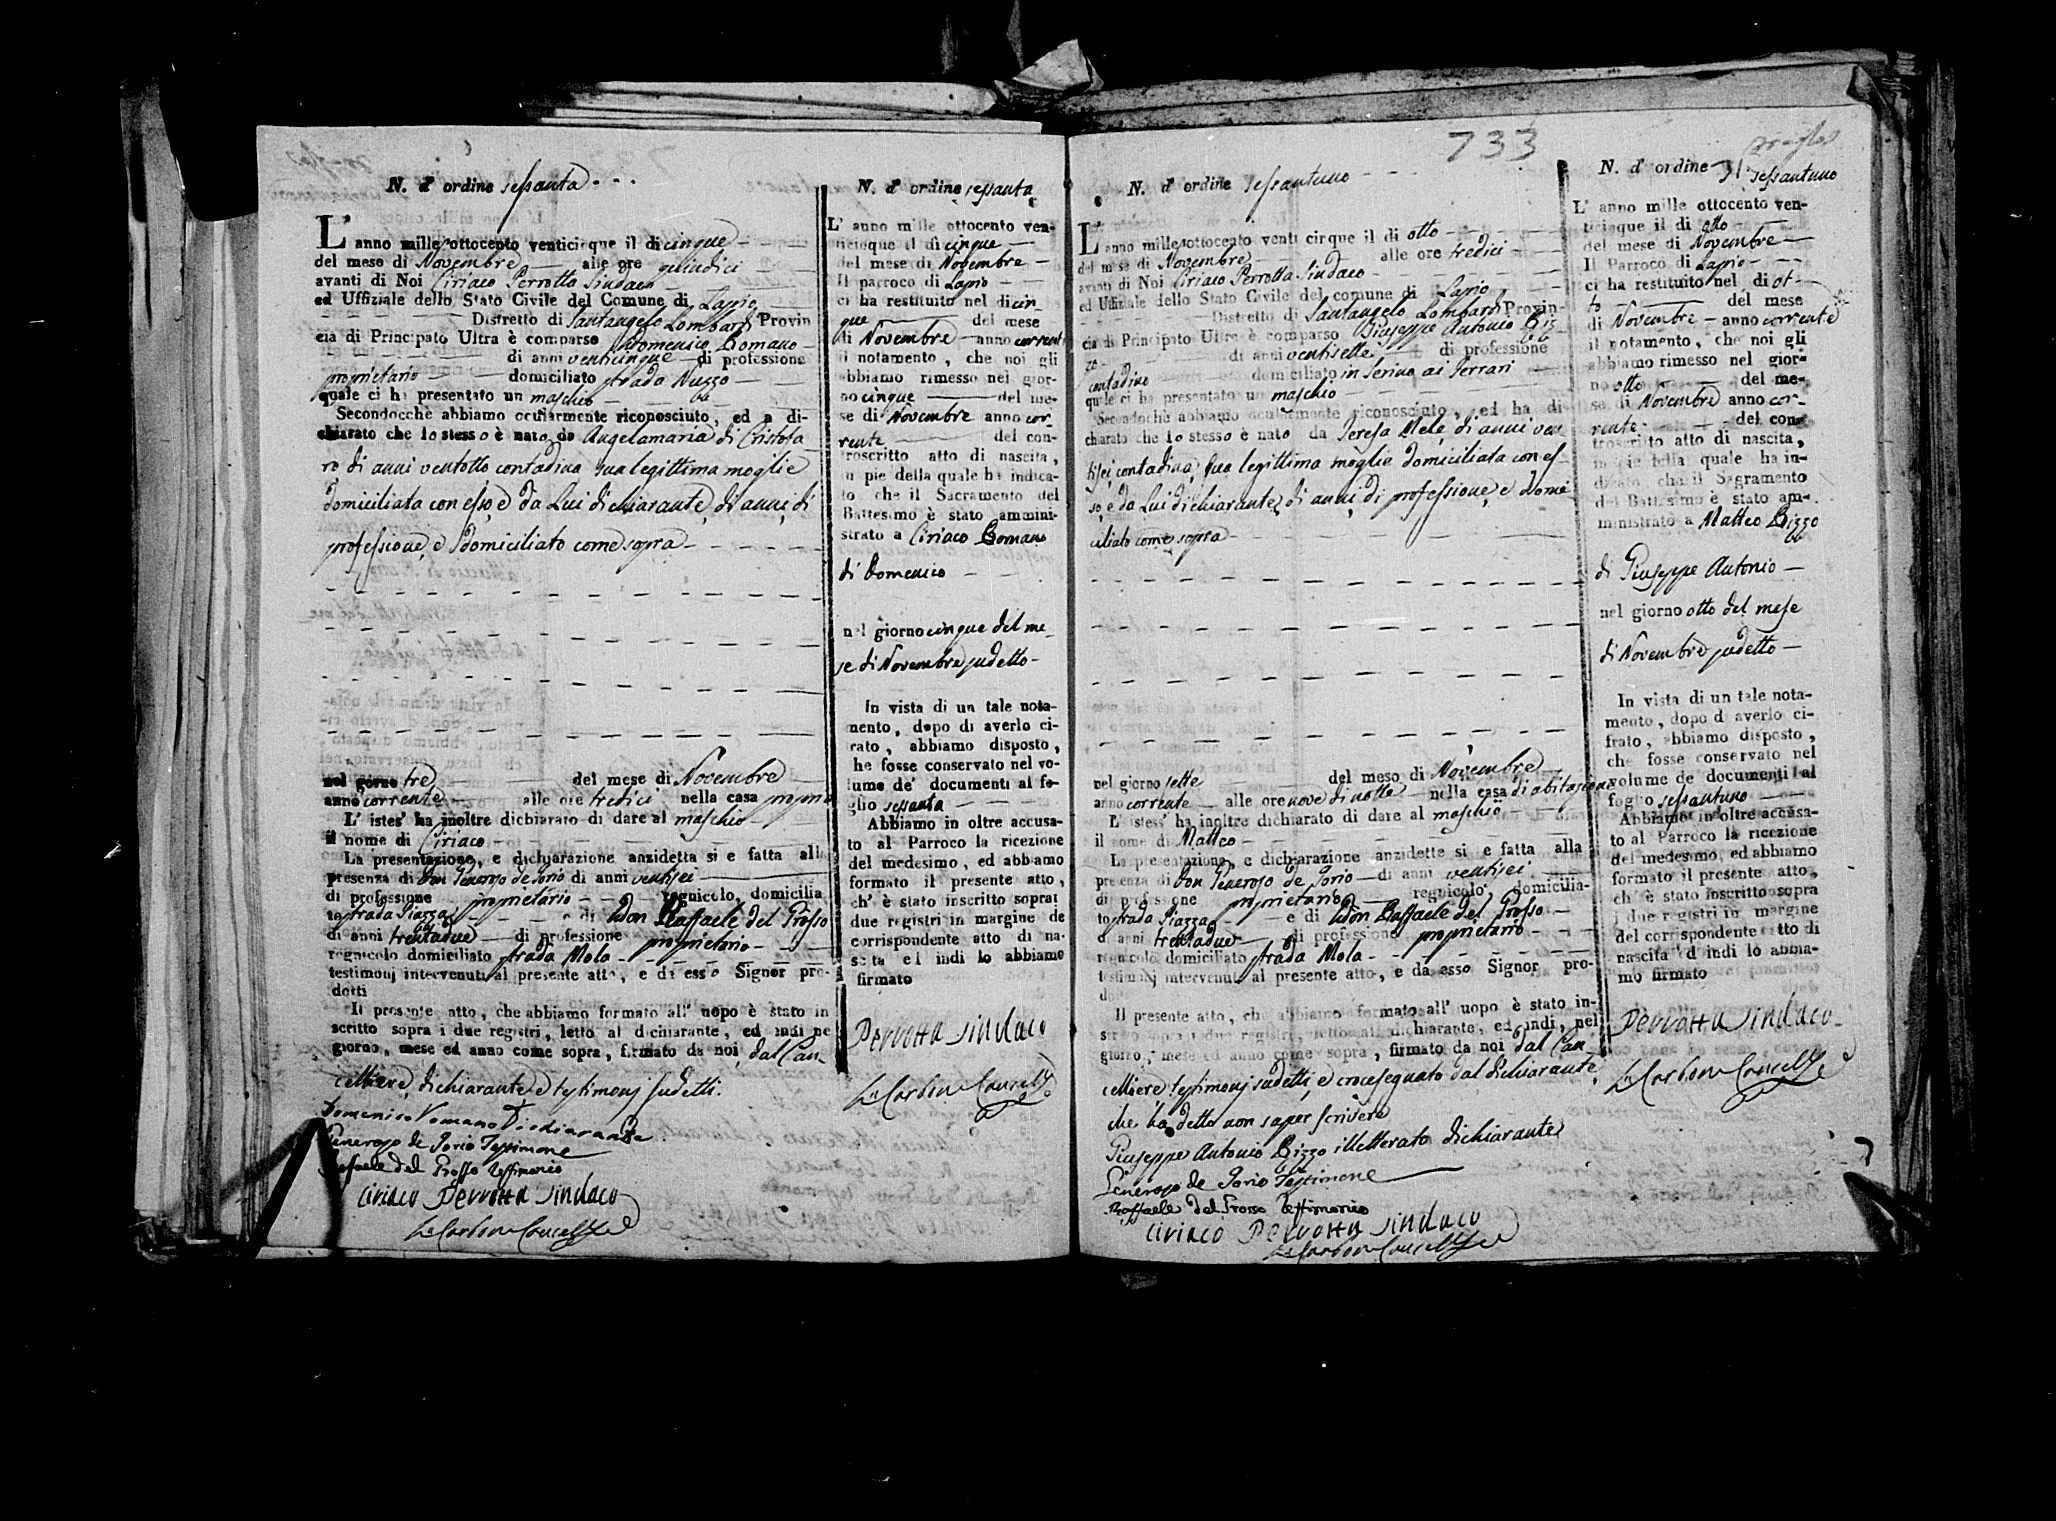 N. d' ordine sessanta
L' anno mille ottocento venticinque il di cinque
del mese di Novembre alle ore quindici
avanti di Noi Ciriaco Perrotta Sindaco
ed Uffiziale dello Stato Civile del Comune di Lapio
Distretto di Santangelo Lombardi Provin
cia di Principato Ultra è comparso Domenico Romano
di anni venticinque di professione
proprietario domiciliato strada Nuzzo
quale ci ha presentato un maschio
Secondocchè abbiamo ocularmente riconosciuto, ed a di-
chiarato che lo stesso è nato da Angelamaria di Cristofa
ro di anni ventotto contadina sua legittima moglie
domiciliata con esso, e da Lui dichiarante, di anni, di
professione, e domiciliato come sopra
nel giorno tre del mese di Novembre
anno corrente alle ore tredici nella casa propria
L' istes' ha inoltre dichiarato di dare al maschio
il nome di Ciriaco
La presentazione, e dichiarazione anzidetta si e fatta alla
presenza di Don Generoso de Iorio di anni ventisei
di professione proprietario regnicolo, domicilia
to strada Piazza e di Don Raffaele del Grosso
di anni trentadue di professione proprietario
regnicolo domiciliato strada Mola
testimonj intervenuti al presente atto, e da esso Signor pro-
dotti
Il presente atto, che abbiamo formato all' uopo è stato in
scritto sopra i due registri, letto al dichiarante, ed indi ne
giorno, mese ed anno come sopra, firmato da noi dal Can
celliere, dichiarante e testimonj sudetti.
Domenico Romano Dichiarante
Generoso de Iorio Testimone
Raffaele del Grosso testimonio
Ciriaco Perrotta Sindaco
N. d' ordine sessanta
L' anno mille ottocento ven-
ticinque il di cinque
del mese di Novembre
Il parroco di Lapio
ci ha restituito nel di cin
que del mese
di Novembre anno corrente
il notamento, che noi gli
abbiamo rimesso nel gior-
no cinque del me-
se di Novembre anno cor-
rente del con-
troscritto atto di nascita,
in pie della quale ha indica-
to che il Sacramento del
Battesimo è stato ammini-
strato a Ciriaco Romano
di Domenico
nel giorno cinque del me-
se di Novembre sudetto
In vista di un tale nota-
mento, dopo di averlo ci-
frato, abbiamo disposto,
che fosse conservato nel vo-
lume de' documenti al fo-
glio sessanta
Abbiamo in oltre accusa-
to al Parroco la ricezione
del medesimo, ed abbiamo
formato il presente atto,
ch' è stato inscritto sopra
due registri in margine de
corrispondente atto di na-
scita ed indi lo abbiamo
firmato
Perrotta Sindaco
733
N. d' ordine sessantuno
L' anno mille ottocento venti cinque il di otto
del mese di Novembre alle ore tredici
avanti di Noi Ciriaco Perrotta Sindaco
ed Uffiziale dello Stato Civile del comune di Lapio
Distretto di Santangelo Lombardi Provin-
cia di Principato Ultra è comparso Giuseppe Antonio Riz
zo di anni ventisette di professione
contadino domiciliato in Serino ai Ferrari
quale ci ha presentato un maschio
Secondochè abbiamo ocularmente riconosciuto, ed ha di
chiarato che lo stesso è nato da Teresa Mele di anni ven
tisei contadina, sua legittima moglie domiciliata con es
so, e da Lui dichiarante, di anni, di professione, e domi
ciliato come sopra
nel giorno sette del mese di Novembre
anno corrente alle ore nove di notte nella casa di abitazione
L' istess' ha inoltre dichiarato di dare al maschio
il nome di Matteo
La presentazione, e dichiarazione anzidette si e fatta alla
presenza di Don Generoso de Iorio di anni ventisei
di professione proprietario regnicolo domicilia-
to strada Piazza e di Don Raffaele del Grosso
di anni trentadue di professione proprietario
regnicolo domiciliato strada Mola
testimonj intervenuti al presente atto, e da esso Signor pro-
dotti
Il presente atto, che abbiamo formato all' uopo è stato in-
scritto sopra i due registri, letto al dichiarante, ed indi, nel
giorno, mese ed anno come sopra, firmato da noi dal Can
celliere testimonj sudetti, e crocesegnato dal dichiarante,
che ha detto non saper scrivere
Giuseppe Antonio Rizzo illetterato dichiarante
Generoso de Iorio Testimone
Raffaele del Grosso testimonio
Ciriaco Perrotta Sindaco
N. d' ordine sessantuno
L' anno mille ottocento ven-
ticinque il di otto
del mese di Novembre
Il Parroco di Lapio
ci ha restituito nel di ot-
to del mese
di Novembre anno corrente
il notamento, che noi gli
abbiamo rimesso nel gior-
no otto del me-
se di Novembre anno cor-
rente del con-
troscritto atto di nascita,
in pie della quale ha in-
dicato che il Sagramento
del Battesimo è stato am-
ministrato a Matteo Rizzo
di Giuseppe Antonio
nel giorno otto del mese
di Novembre sudetto
In vista di un tale nota-
mento, dopo d averlo ci-
frato, abbiamo disposto,
che fosse conservato nel
volume de documenti al
foglio sessantuno
Abbiamo in oltre accusa-
to al Parroco la ricezione
del medesimo, ed abbiamo
formato il presente atto,
ch' è stato inscritto sopra
i due registri in margine
del corrispondente atto di
nascita ed indi lo abbia-
mo firmato
Perrotta Sindaco